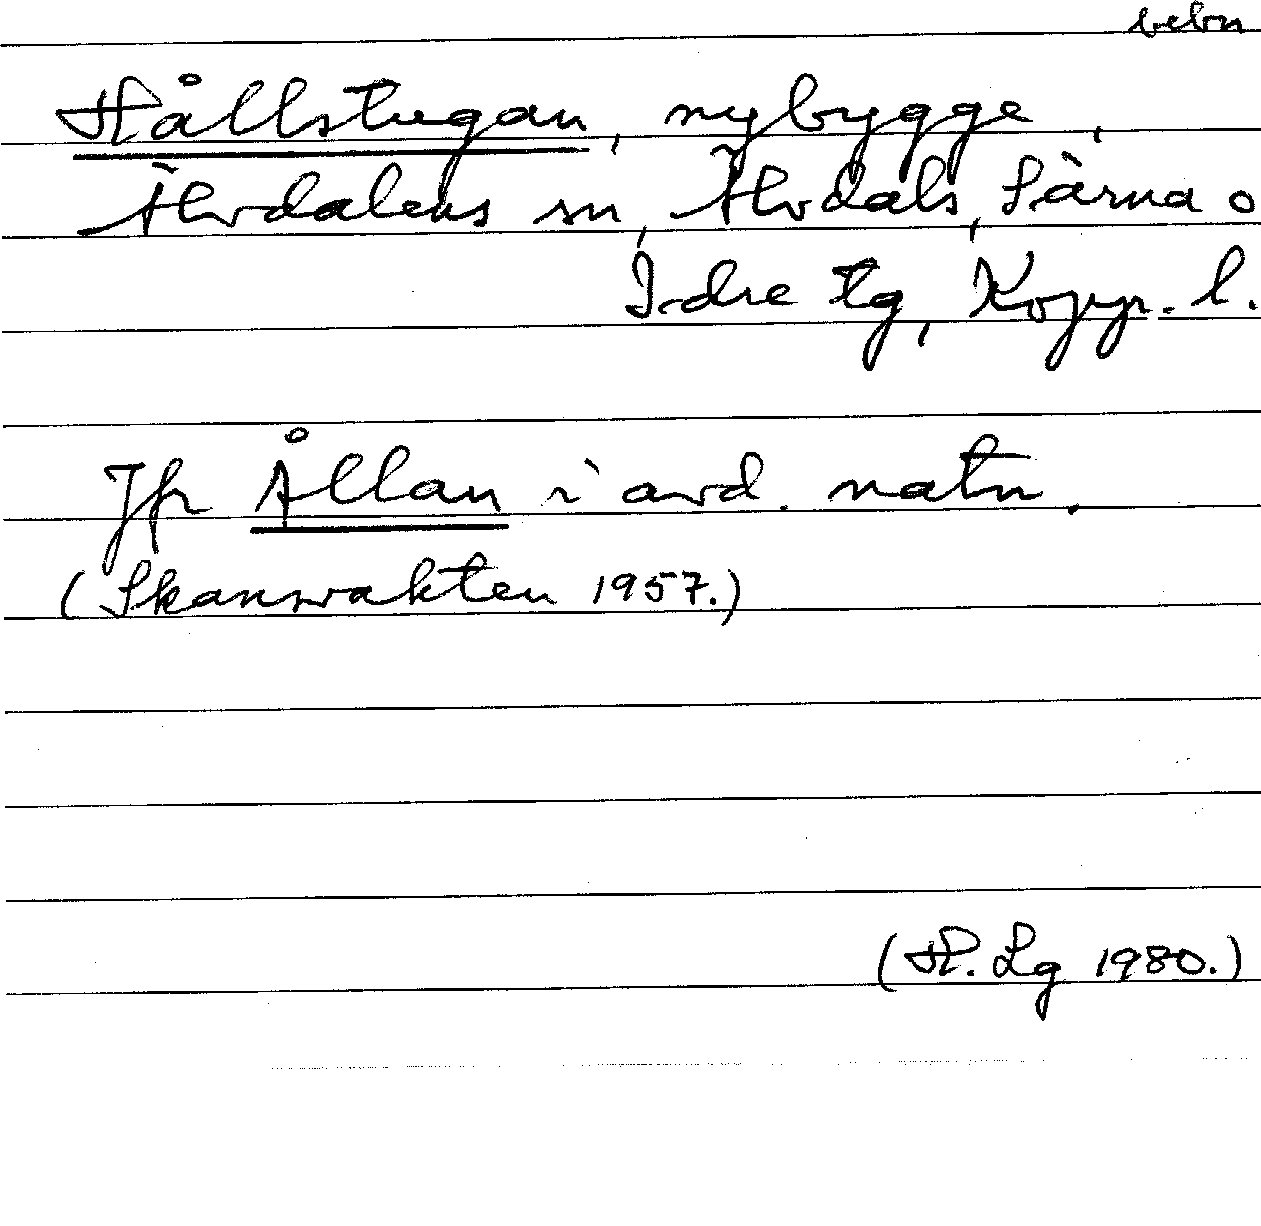 bebn
Hållstugan, nybygge,
Älvdalens sn, Älvdals, Särna o
Idre tg, Kopp. l.
Jfr Ållan i avd. natn.
(Skansvakten 1957.)
(H. Lg 1980.)